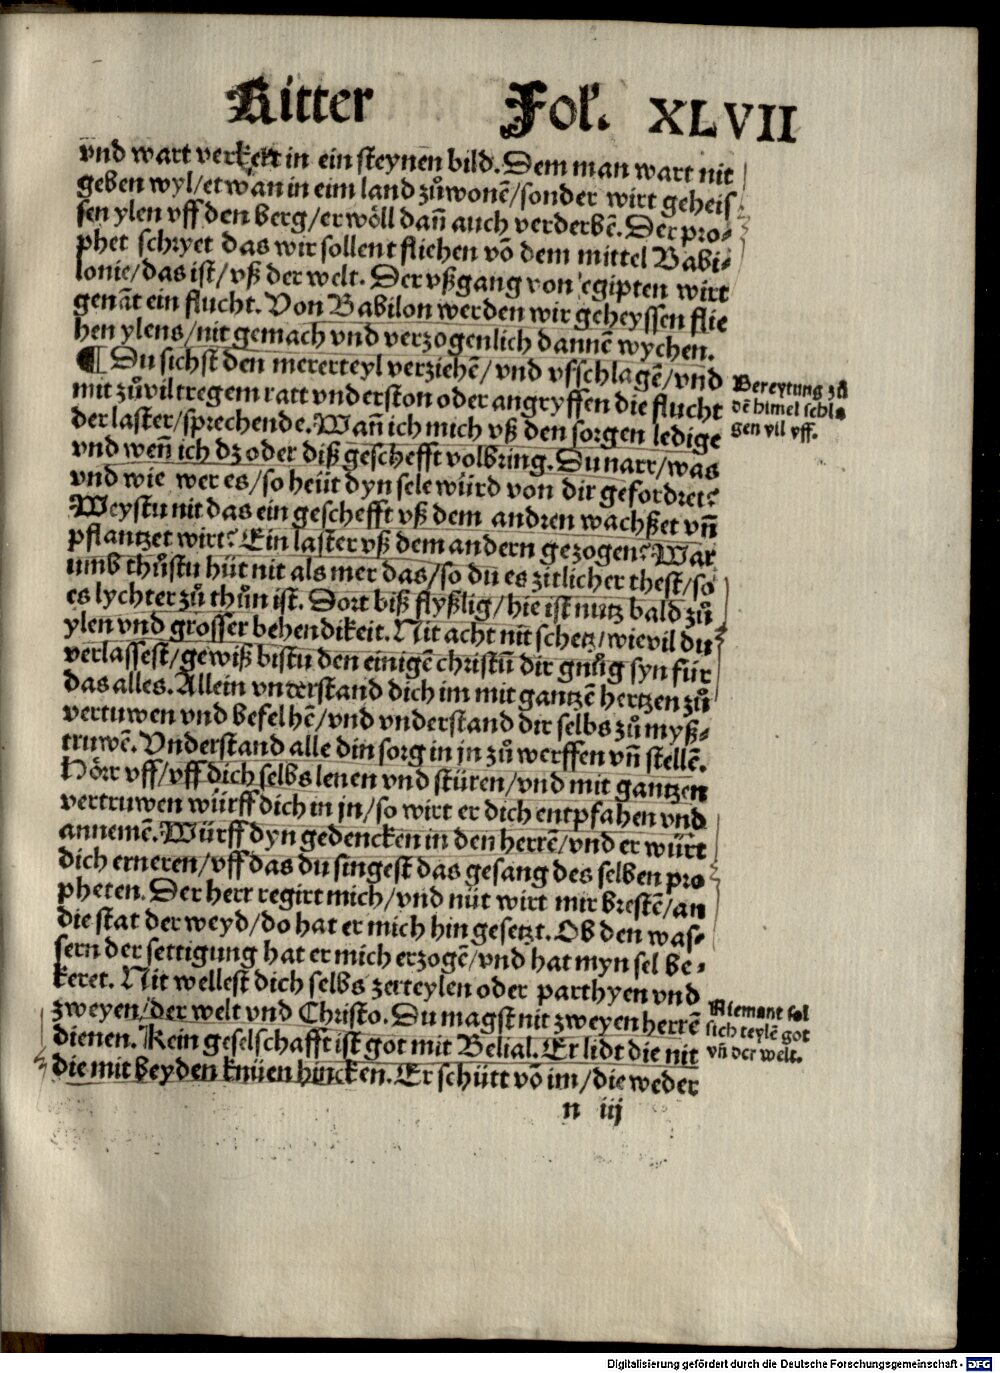 Ritter Fol. XLVII
vnd wart verkert in ein steynen bild. Dem man wart nit
geben wyl/etwan in eim land zůwonē/sonder wirt geheis
sen ylen vff den berg/er wöll dañ auch verderbē. Der pro-
phet schryet das wir sollent fliehen vō dem mittel Babi-
lonie/das ist/vß der welt. Der vßgang von egipten wirt
genāt ein flucht. Von Babilon werden wir geheyssen flie
hen ylens/nit gemach vnd verzogenlich dannē wychen.
¶ Du sichst den mererteyl verziehē/vnd vfschlagē/vnd
mit zůvil tregem ratt vnderston oder angryffen die flucht
der laster/sprechende. Wañ ich mich vß den sorgen ledige
vnd weñ ich dz oder diß geschefft volbring. Du narr/was
vnd wie wer es/so heüt dyn sele würd von dir gefordret?
Weystu nit das ein geschefft vß dem andren wachßet vñ
pflantzet wirt? Ein laster vß dem andern gezogen? War
umb thůstu hüt nit als mer das/so du es zitlicher thest/so
es lychter zů thůn ist. Dort biß flyßlig/hie ist nutz bald zů
ylen vnd grosser behendikeit. Nit acht nit schetz/wievil du
verlassest/gewiß bistu den einigē christū dir gnůg syn für
das alles. Allein vnterstand dich im mit gantzē hertzen zů
vertuwen vnd befelhē/vnd vnderstand dir selbs zů myß-
truwē. Vnderstand alle din sorg in jn zů werffen vñ stellē.
Hörr vff/vff dich selbs lenen vnd stüren/vnd mit gantzen
vertruwen würff dich in jn/so wirt er dich entpfahen vnd
annemē. Würff dyn gedencken in den herrē/vnd er würt
dich erneren/vff das du singest das gesang des selben pro
pheten. Der herr regirt mich/vnd nüt wirt mir brestē/an
die stat der weyd/do hat er mich hin gesetzt. Ob den was-
sern der settigung hat er mich erzogē/vnd hat myn sel be-
keret. Nit wellest dich selbs zerteylen oder parthyen vnd
zweyen/der welt vnd Christo. Du magst nit zweyen herrē
dienen. Kein geselschafft ist got mit Belial. Er lidt die nit
die mit beyden knüen hincken. Er schütt vō im/die weder
n iij
Bereytung zů
dē himel schla
gen vil vff.
Niemant sol
sich teylē got
vñ der welt.
Digitalisierung gefördert durch die Deutsche Forschungsgemeinschaft - DFG